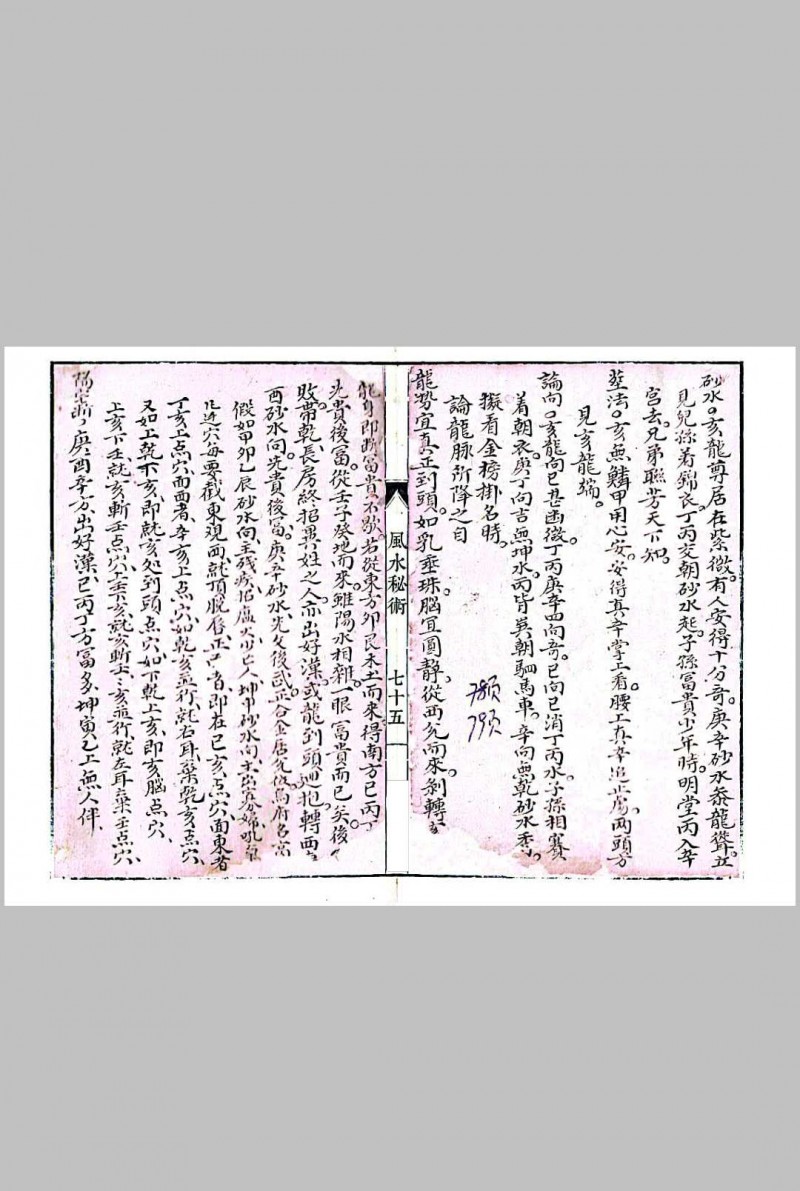 砂水。亥龍尊居在紫微。有人安得十分奇。庚辛砂水叅龍聳立。
見兒孫着錦衣。丁丙交朝砂水起。子孫富貴少年時。明堂丙入辛
宮去。兄弟聯芳天下知。
塟法。亥無鱗甲用心安。安得真辛堂上看。腰上真辛追正房。兩頭方
見亥龍端。
論向。亥龍向巳甚幽微。丁丙庚辛四向奇。巳向巳消丁丙水。子孫相賽
着朝衣。庚丁向吉無坤水。丙皆英朝駟馬車。辛向無乾砂水秀。
擬看金榜掛名時。
論龍脉所降之自
龍勢宜真正到頭。如乳垂珠。腦宜圓静。從西兌而來。剝轉
風水秘術
七十五
龍身即断富貴不歇。若從東方卯艮未土而來。得南方巳丙丁
先貴後富。從壬子癸地而來。雖陽水相雜。一眼富貴而已矣。後
敗。帶乾。長房終招異姓之人。亦出好漢。或龍到頭逆抱。轉西
酉砂水向。先貴後富。庚辛砂水先文後武。
假如甲卯乙辰砂水向。主残疾招盧火少亡人。坤申砂水向主富
凡迯穴毋要截東观西就頂脫唇。正者即在巳亥点穴。面東者
丁亥上点穴。而面者辛亥上点穴。如乾亥並行。就右耳棄乾亥点穴。
又如上乾下亥。即就亥処到頭点穴。如下乾上亥。即亥腦点穴。
上亥下壬。就亥斬壬点穴。上壬下亥。就亥断壬。壬亥並行就左耳棄壬点穴。
断。庚酉辛方出好漢。巳丙丁方富多。坤寅巳上無人伴。